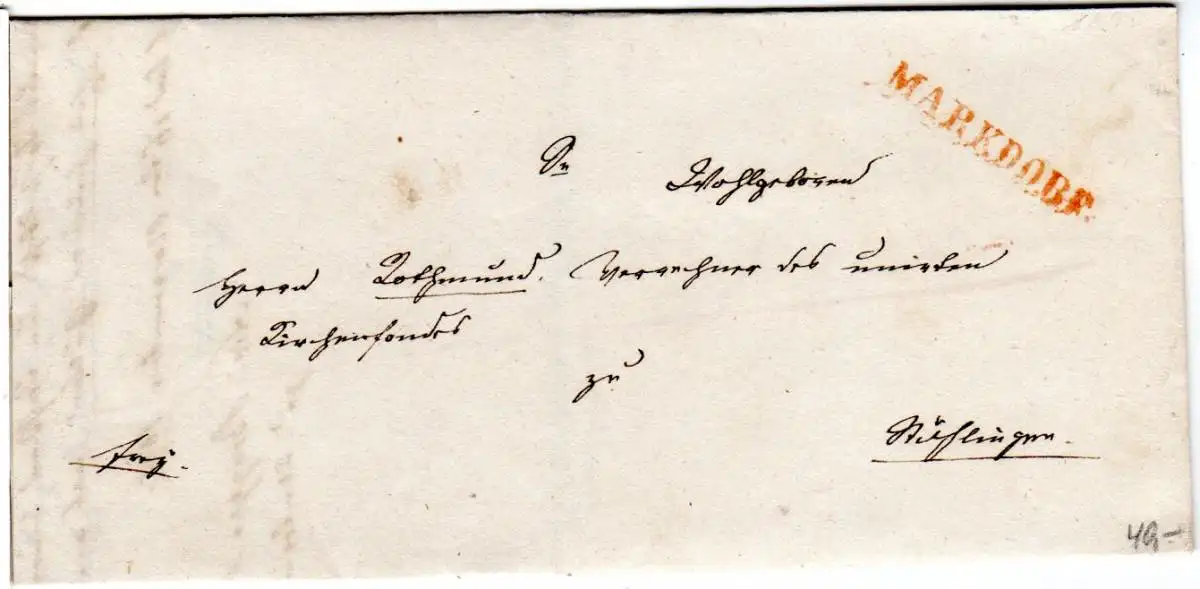 MARKDORF
Sr Wohlgeboren
Herrn Rothmund, Verrechner des unirten
Kirchenfondes
zu
frey.
Stühlingen.
49-